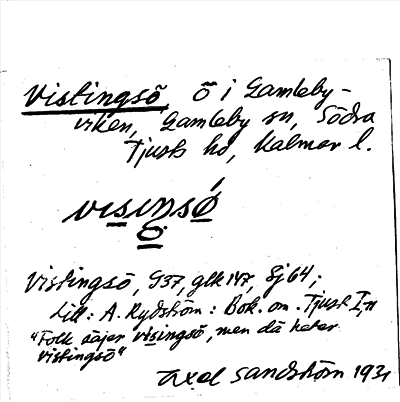 Vistingsö, ö i Gamleby-
viken, Gamleby sn, Södra
Tjusts hd, Kalmar l.
visinsö
Vistingsö, G37, glk 147, Sj 64;
Litt: A. Rydström: Bok. om. Tjust I,
"Folk säjer visingsö, men dä heter
vistingsö"
Axel Sandström 1931